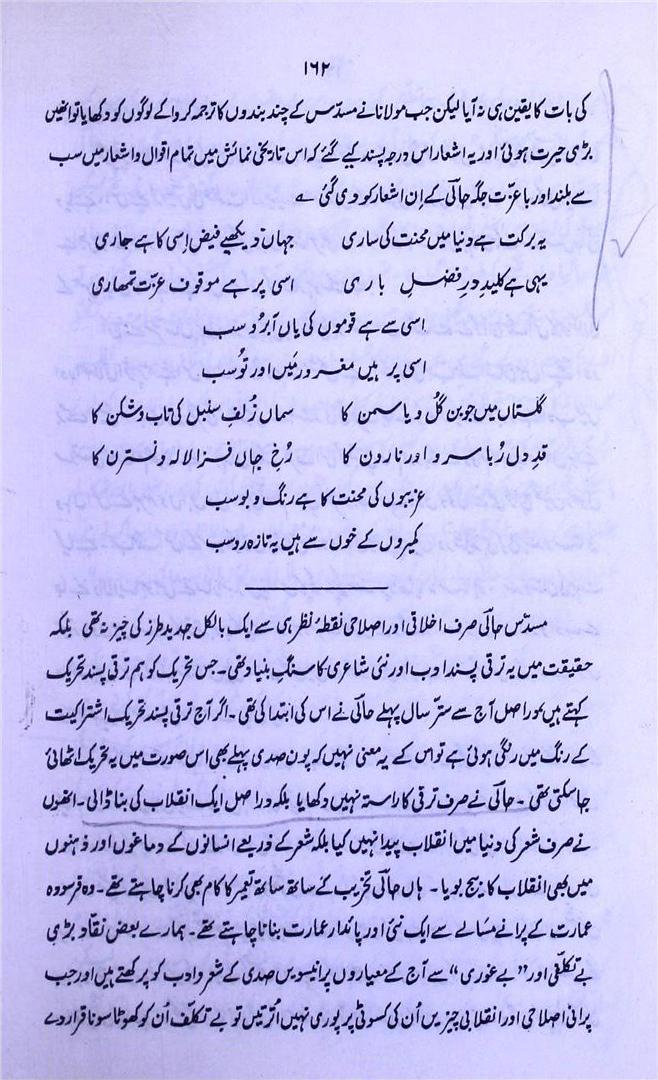 ۱۶۲
کی بات کا یقین ہی نہ آیا لیکن جب مولانا نے مسدّس کے چند بندوں کا ترجمہ کروا کے لوگوں کو دکھایا تو انھیں
بڑی حیرت ہوئی اور یہ اشعار اس درجہ پسند کیے گئے کہ اس تاریخی نمائش میں تمام اقوال و اشعار میں سب
سے بلند اور باعزّت جگہ حالؔی کے اِن اشعار کو دی گئی ؎
یہ برکت ہے دنیا میں محنت کی ساری جہاں دیکھیے فیض اِسی کا ہے جاری
یہی ہے کلیدِ درِ فضلِ باری اسی پر ہے موقوف عزّت تمھاری
اسی سے ہے قوموں کی یاں آبرُو سب
اسی پر ہیں مغرور مَیں اور تُو سب
گلستاں میں جوبن گُل و یاسمن کا سماں زُلفِ سنبل کی تاب و شکن کا
قدِ دل رُبا سرو اور نارون کا رُخِ جاں فزا لالہ و نسترن کا
غریبوں کی محنت کا ہے رنگ و بو سب
کمیروں کے خوں سے ہیں یہ تازہ رو سب
مسدّسِ حالؔی صرف اخلاقی اور اصلاحی نقطۂ نظر ہی سے ایک بالکل جدید طرز کی چیز نہ تھی بلکہ
حقیقت میں یہ ترقی پسند ادب اور نئی شاعری کا سنگِ بنیاد تھی۔ جس تحریک کو ہم ترقی پسند تحریک
کہتے ہیں دراصل آج سے ستّر سال پہلے حالؔی نے اس کی ابتدا کی تھی۔ اگر آج ترقی پسند تحریک اشتراکیت
کے رنگ میں رنگی ہوئی ہے تو اس کے یہ معنی نہیں کہ پون صدی پہلے بھی اس صورت میں یہ تحریک اٹھائی
جاسکتی تھی۔ حالؔی نے صرف ترقی کا راستہ نہیں دکھایا بلکہ دراصل ایک انقلاب کی بنا ڈالی۔ انھوں
نے صرف شعر کی دنیا میں انقلاب پیدا نہیں کیا بلکہ شعر کے ذریعے انسانوں کے دماغوں اور ذہنوں
میں بھی انقلاب کا بیج بویا۔ ہاں حالؔی تخریب کے ساتھ ساتھ تعمیر کا کام بھی کرنا چاہتے تھے۔ وہ فرسودہ
عمارت کے پرانے مسالے سے ایک نئی اور پائدار عمارت بنانا چاہتے تھے۔ ہمارے بعض نقّاد بڑی
بے تکلّفی اور ”بے غوری“ سے آج کے معیاروں پر انیسویں صدی کے شعر و ادب کو پرکھتے ہیں اور جب
پرانی اصلاحی اور انقلابی چیزیں اُن کی کسوٹی پر پوری نہیں اُترتیں تو بے تکلّف اُن کو کھوٹا سونا قرار دے